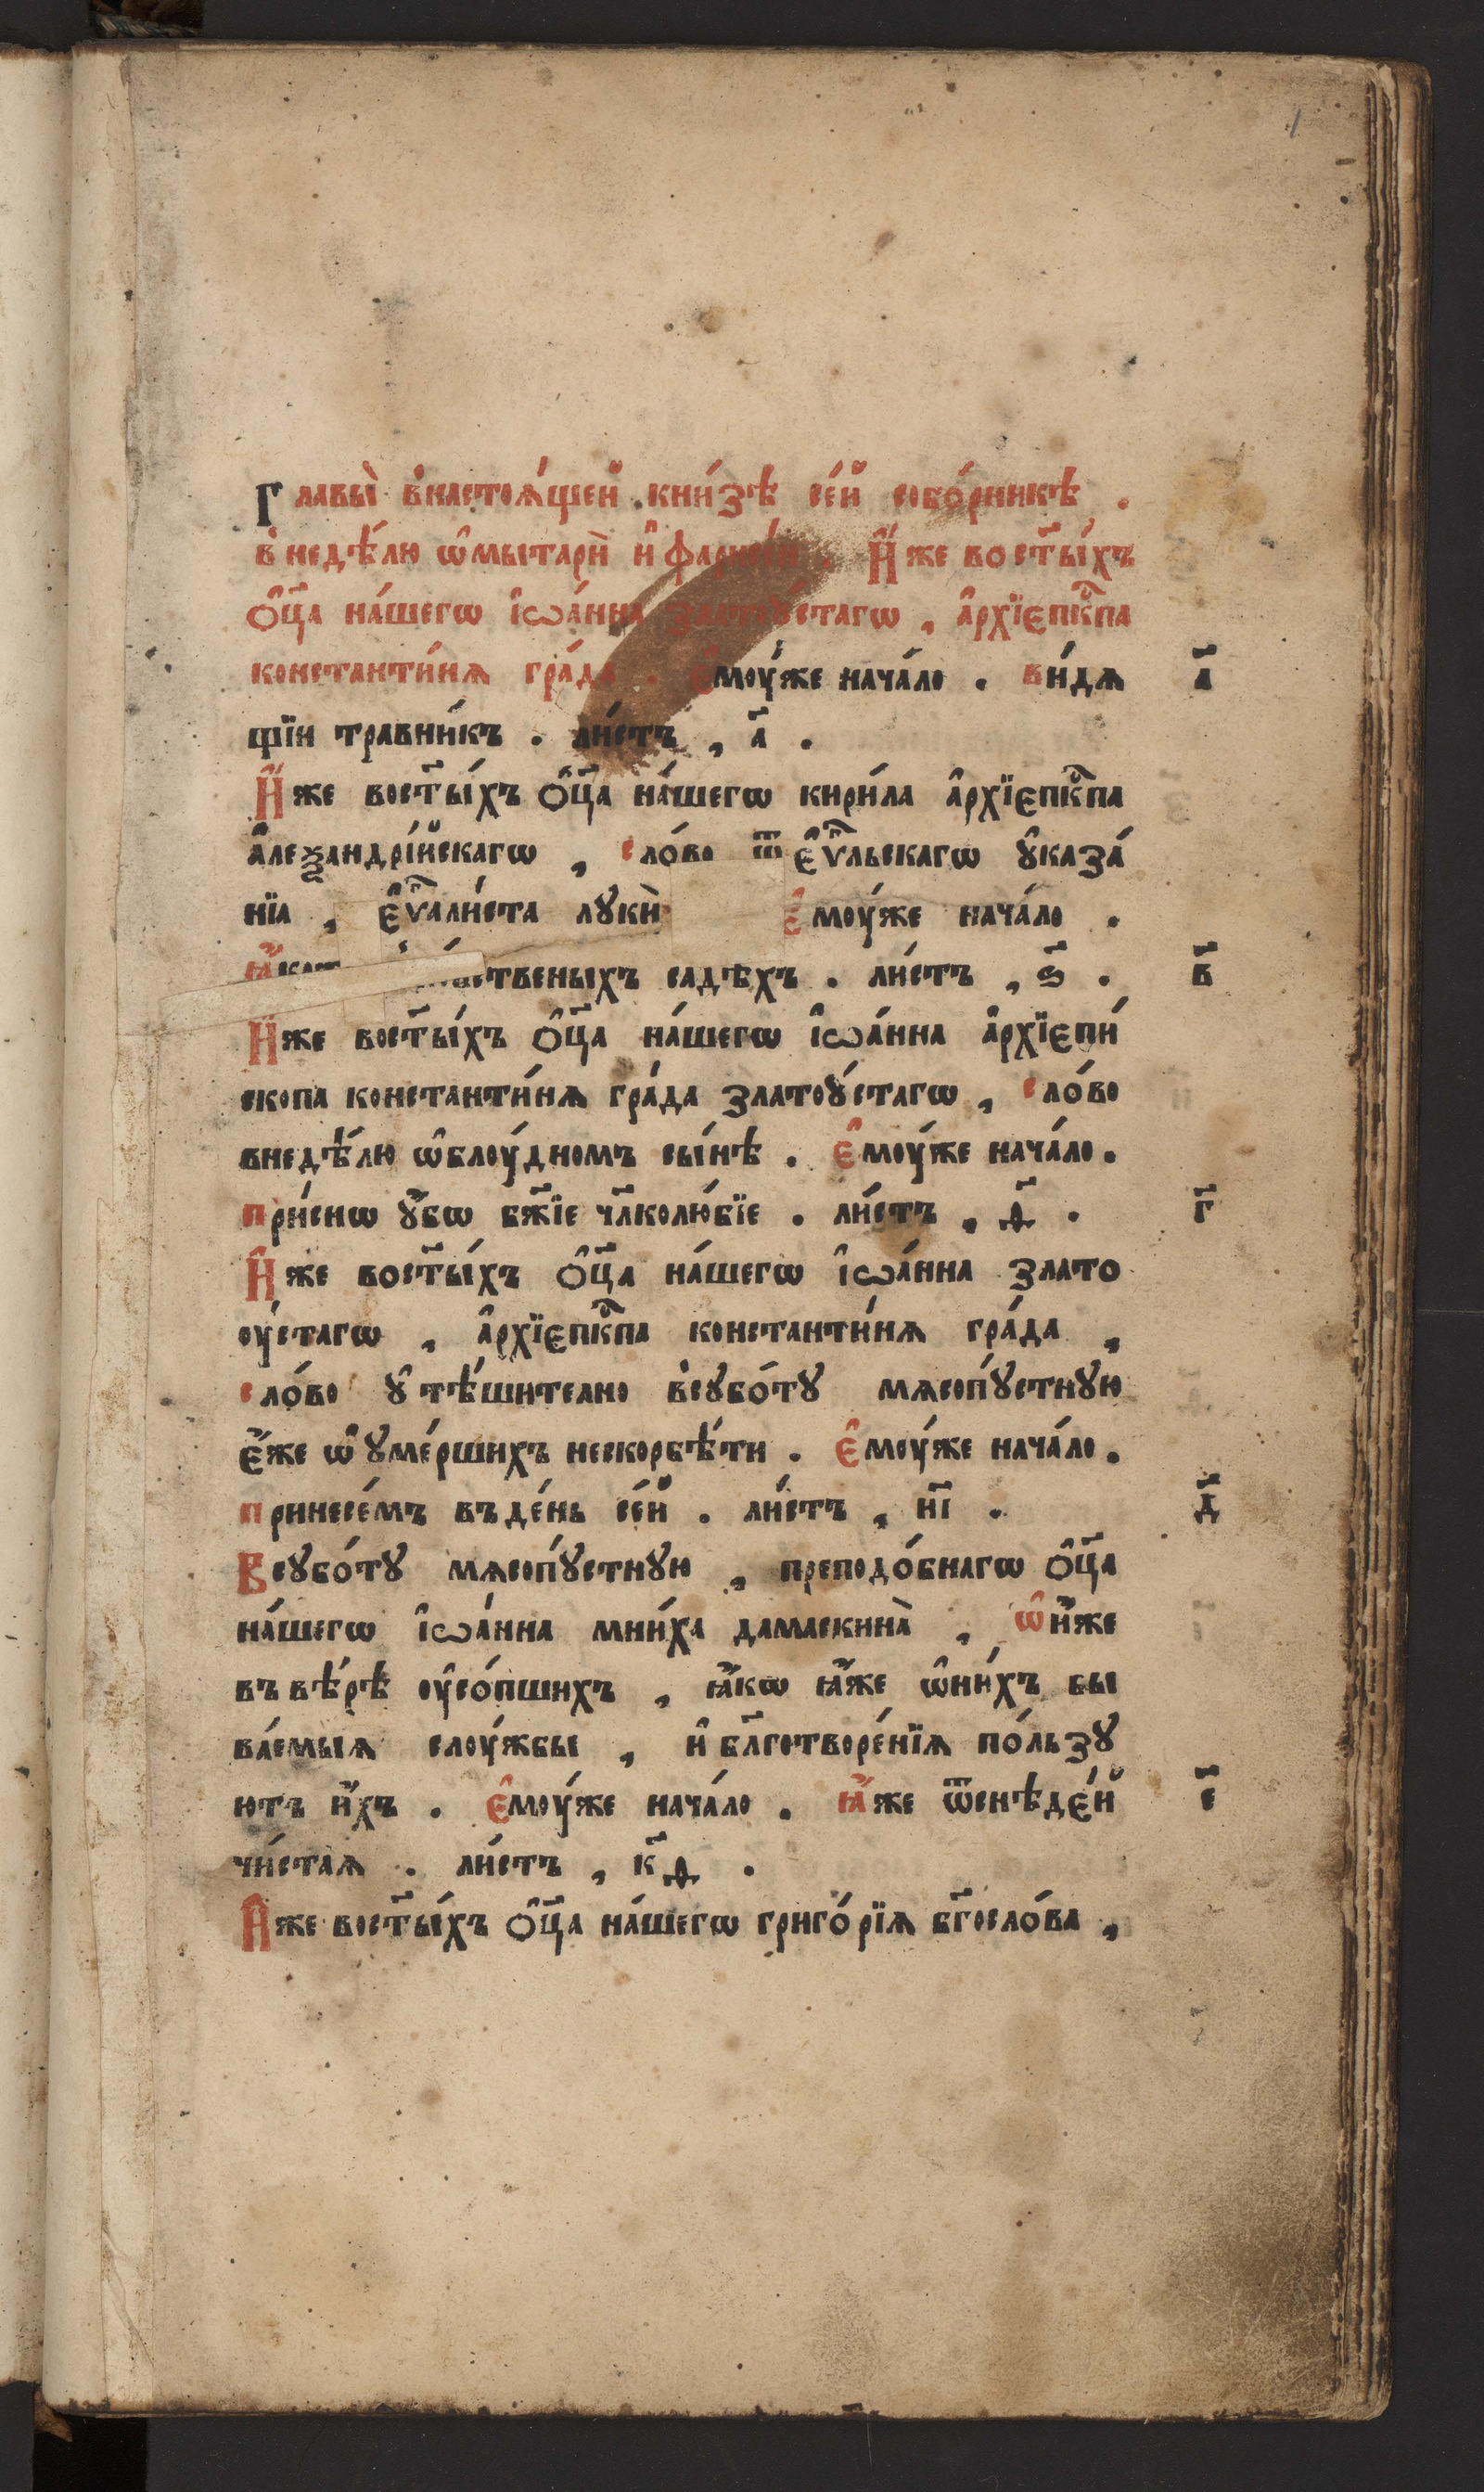 Главы̀ в̾настоѧ́щеи̾ . кни́зѣ се́й собо́рникѣ .
в̾ недѣ́лю ѡ҆мытарѝ и҆ фарисе́и . И҆́же во ст҃ы́хъ
ѻ҆ц҃а на́шегѡ і҆ѡа́нна златоу́стагѡ , а҆рхїєпⷭ҇кпа
константи́нѧ гра́да . є҆моу́же нача́ло . ви́дѧ а҃
щїи травни́къ . ли́стъ , а҃ .
И҆́же вост҃ы́хъ ѻ҆ц҃а на́шегѡ кири́ла а҆рхїєпⷭ҇кпа
а҆леѯандрі́йскагѡ , сло́во ѿ є҆ѵⷢ҇льскагѡ ꙋ҆каза́
нїа , є҆ѵⷢ҇али́ста лꙋкѝ є҆моу́же нача́ло .
ственыхъ садѣхъ . ли́стъ , ѕ҃ . в҃
И҆́же вост҃ы́хъ ѻ҆ц҃а на́шегѡ і҆ѡа́нна а҆рхїєпи́
скопа константи́нѧ гра́да златоꙋ́стагѡ , сло́во
внедѣ́лю ѡ҆блоу́дномъ сы́нѣ . є҆моу́же нача́ло .
при́снѡ ꙋ҆́бѡ бж҃їе чл҃колю́бїе . ли́стъ , д҃ . г҃
И҆́же вост҃ы́хъ ѻ҆ц҃а на́шегѡ і҆ѡа́нна злато
оу́стагѡ , а҆рхїєпⷭ҇кпа константи́нѧ гра́да ,
сло́во ꙋ҆тѣ́шително в̾сꙋбо́тꙋ мѧсопꙋ́стнꙋю
є҆́же ѡ҆ ꙋ҆ме́ршихъ нескорбѣ́ти . є҆моу́же нача́ло .
принесе́мъ въ де́нь се́й . ли́стъ , и҃і . д҃
Всꙋбо́тꙋ мѧсопꙋ́стнꙋю , преподо́бнагѡ ѻ҆ц҃а
на́шегѡ і҆ѡа́нна мни́ха дамаскина̀ , ѡ҆ и҆́же
въ вѣ́рѣ оу҆со́пшихъ , ꙗ҆́кѡ ꙗ҆́же ѡ҆ни́хъ бы
ва́емыѧ слоу́жбы , и҆ бл҃готворе́нїѧ по́льзꙋ
ютъ и҆́хъ . є҆моу́же нача́ло . ꙗ҆́же ѿснѣде́й є҃
чи́стаѧ . ли́стъ , к҃д .
И҆́же вост҃ы́хъ ѻ҆ц҃а на́шегѡ григо́рїѧ бг҃осло́ва ,